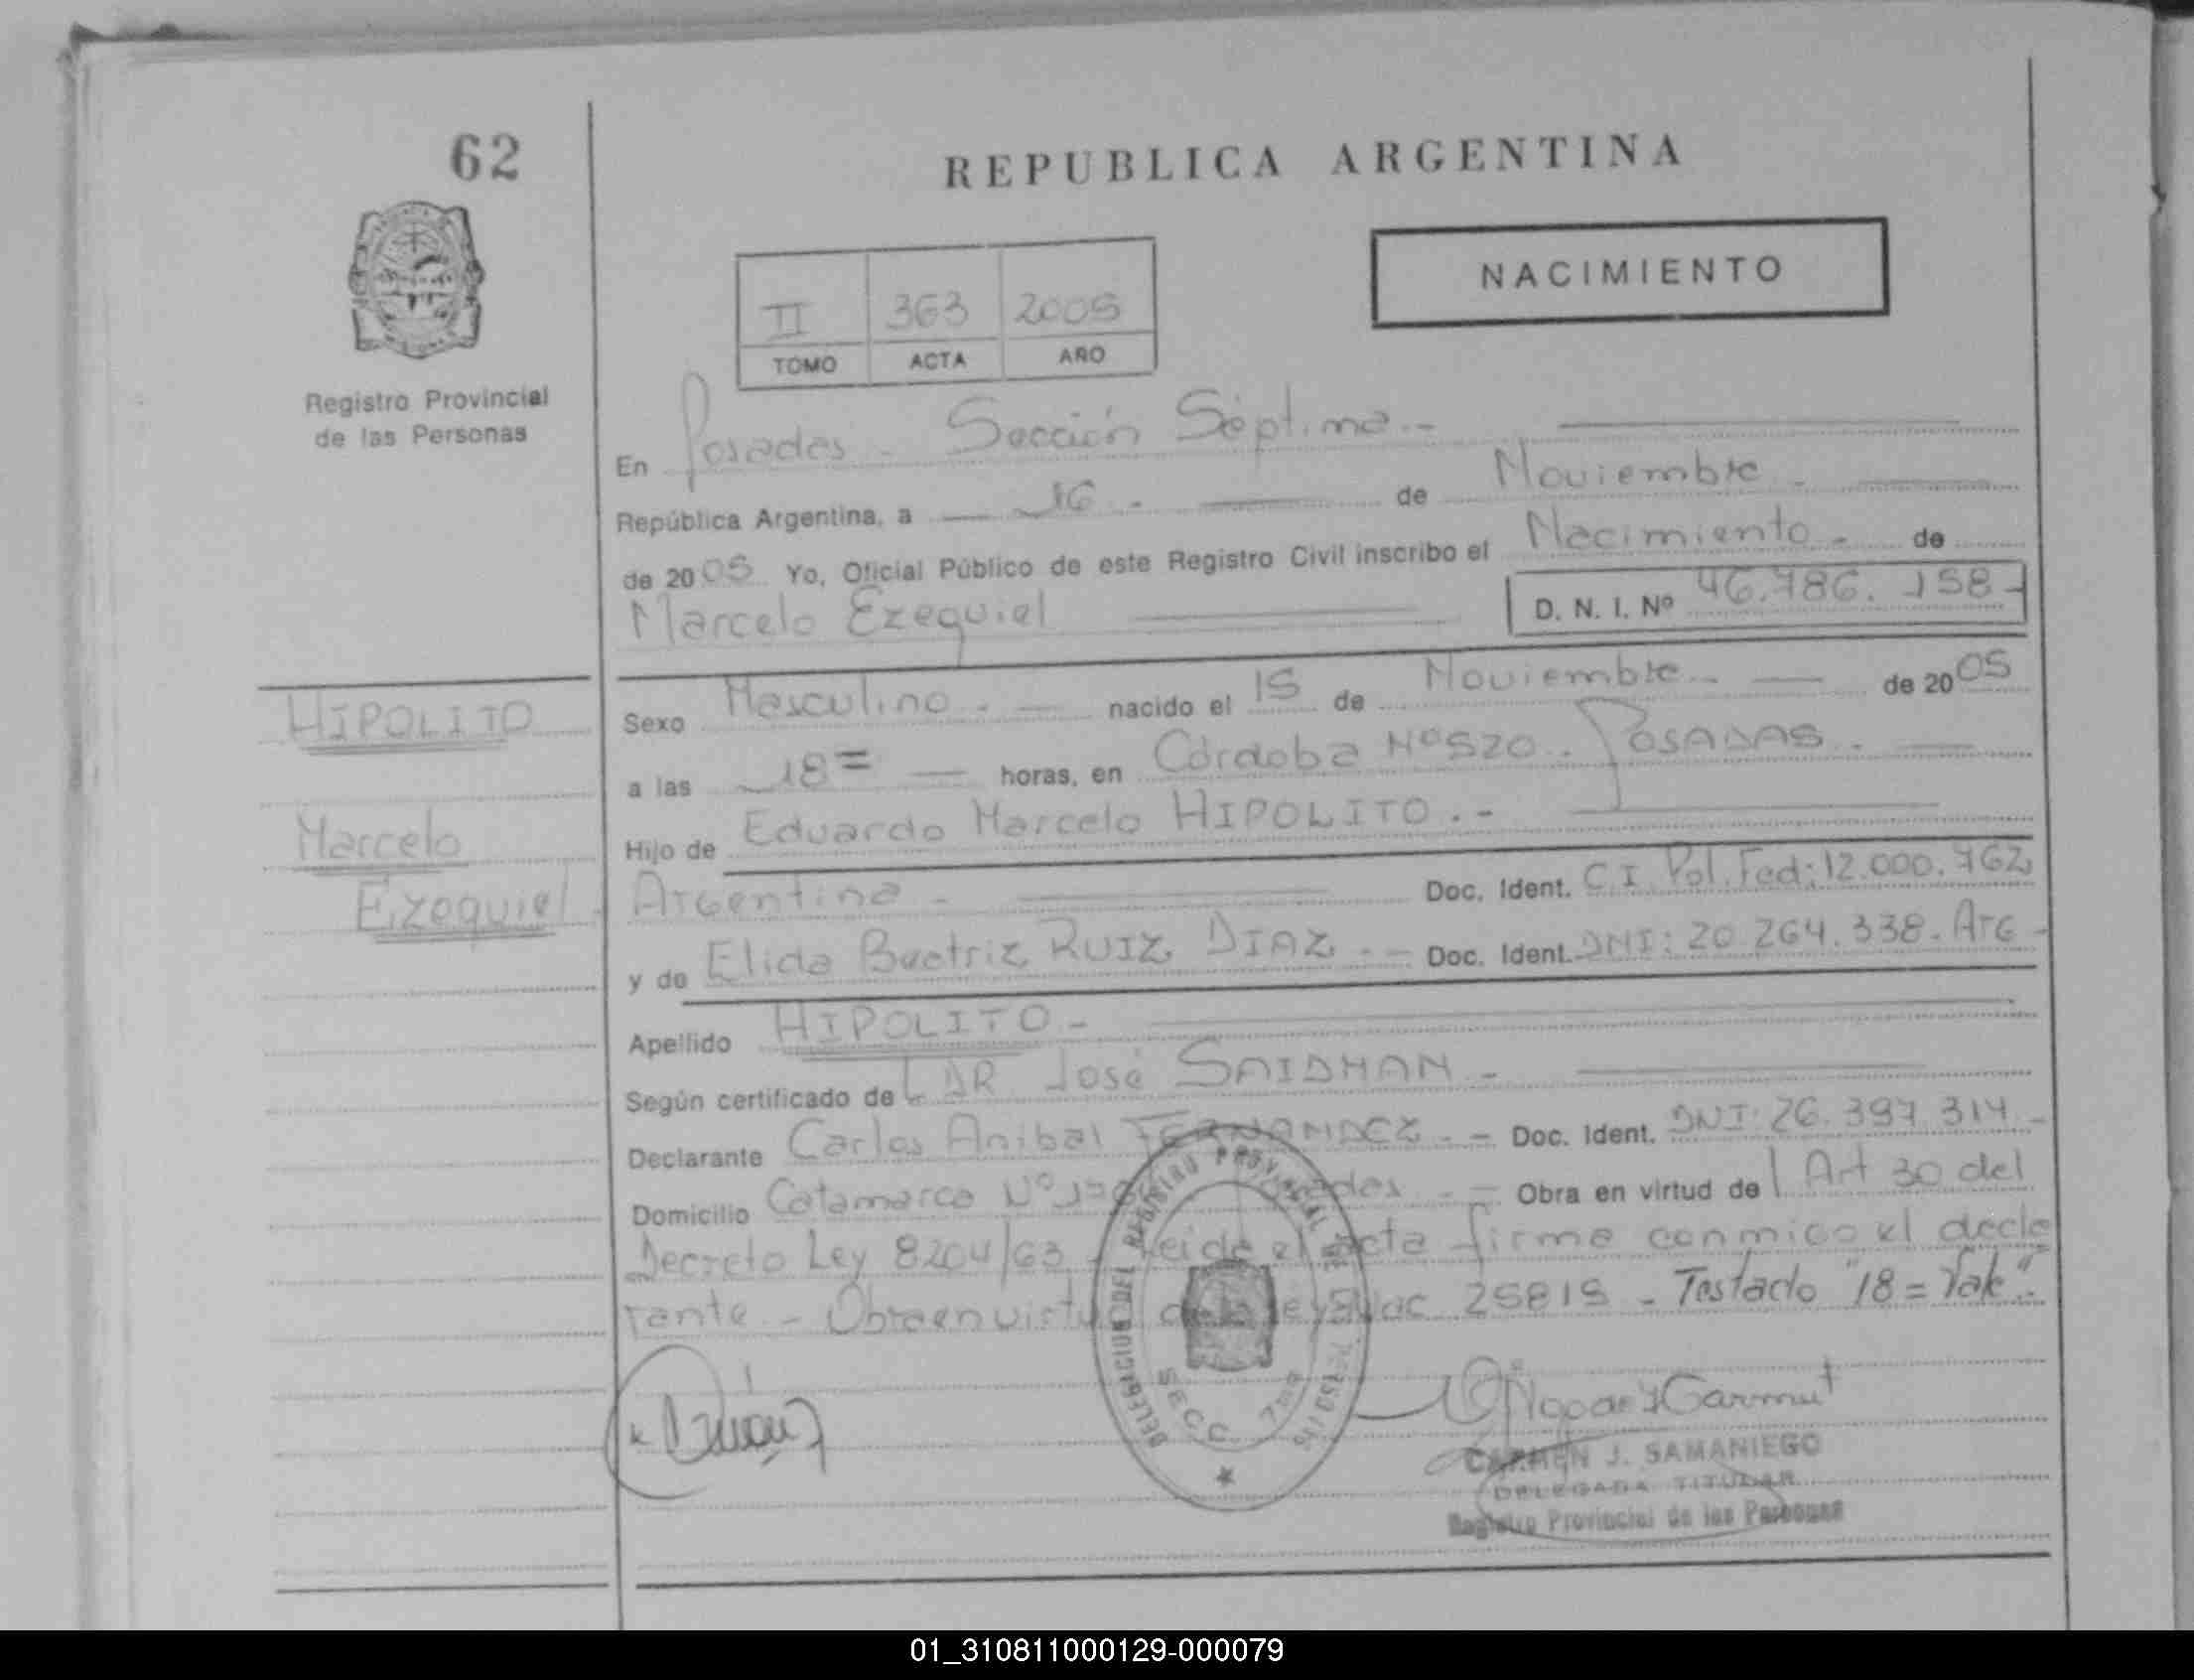 62
REPUBLICA ARGENTINA
NACIMIENTO
II 363 2005
TOMO ACTA AÑO
Registro Provincial
de las Personas
En Posadas - Sección Séptima.-
República Argentina, a 16 - de Noviembre -
de 2005 Yo, Oficial Público de este Registro Civil inscribo el Nacimiento - de
Marcelo Ezequiel D. N. I. Nº 46.786.158-
HIPOLITO
Marcelo
Ezequiel
Sexo Masculino.- nacido el 15 de Noviembre - de 2005
a las 18= horas, en Córdoba Nº 520. POSADAS.
Hijo de Eduardo Marcelo HIPOLITO.-
Argentina - Doc. Ident. C.I. Pol. Fed: 12.000.762
y de Elida Beatriz RUIZ DIAZ.- Doc. Ident. DNI: 20.264.338. Arg -
Apellido HIPOLITO -
Según certificado de L DR José SAIDMAN -
Declarante Carlos Anibal FERNANDEZ.- Doc. Ident. DNI: 26.397.314 -
Domicilio Catamarca Nº Posadas.- Obra en virtud de l Art 30 del
Decreto Ley 8204/63 - Leida el acta firma conmigo el decla
rante - Obra en virtud de la Ley Nac 25819 - Testado "18 = Vale".
DELEGACION DEL REGISTRO PROVINCIAL DE LAS PERSONAS
SECC. 7ma
CARMEN J. SAMANIEGO
DELEGADA TITULAR
Registro Provincial de las Personas
01_310811000129-000079